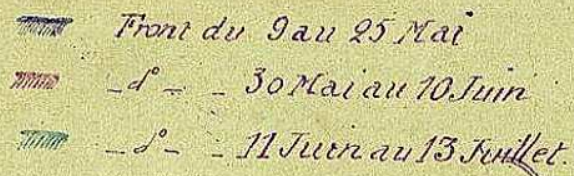 Front du 9 au 25 Mai
_d°_ _ 30 Mai au 10 Juin
_d°_ _ 11 Juin au 13 Juillet.